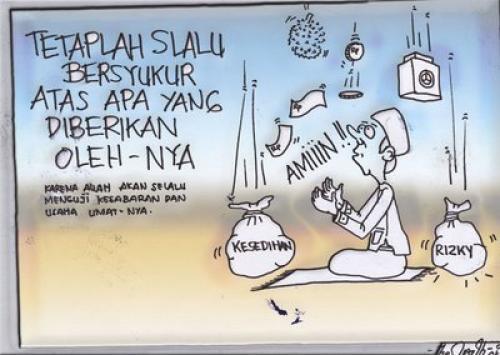 TETAPLAH SLALU
BERSYUKUR
ATAS APA YANG
DIBERIKAN
OLEH-NYA
KARENA ALLAH AKAN SELALU
MENGUJI KESABARAN DAN
USAHA UMAT-NYA.
AMIIIN!!
KESEDIHAN
RIZKY